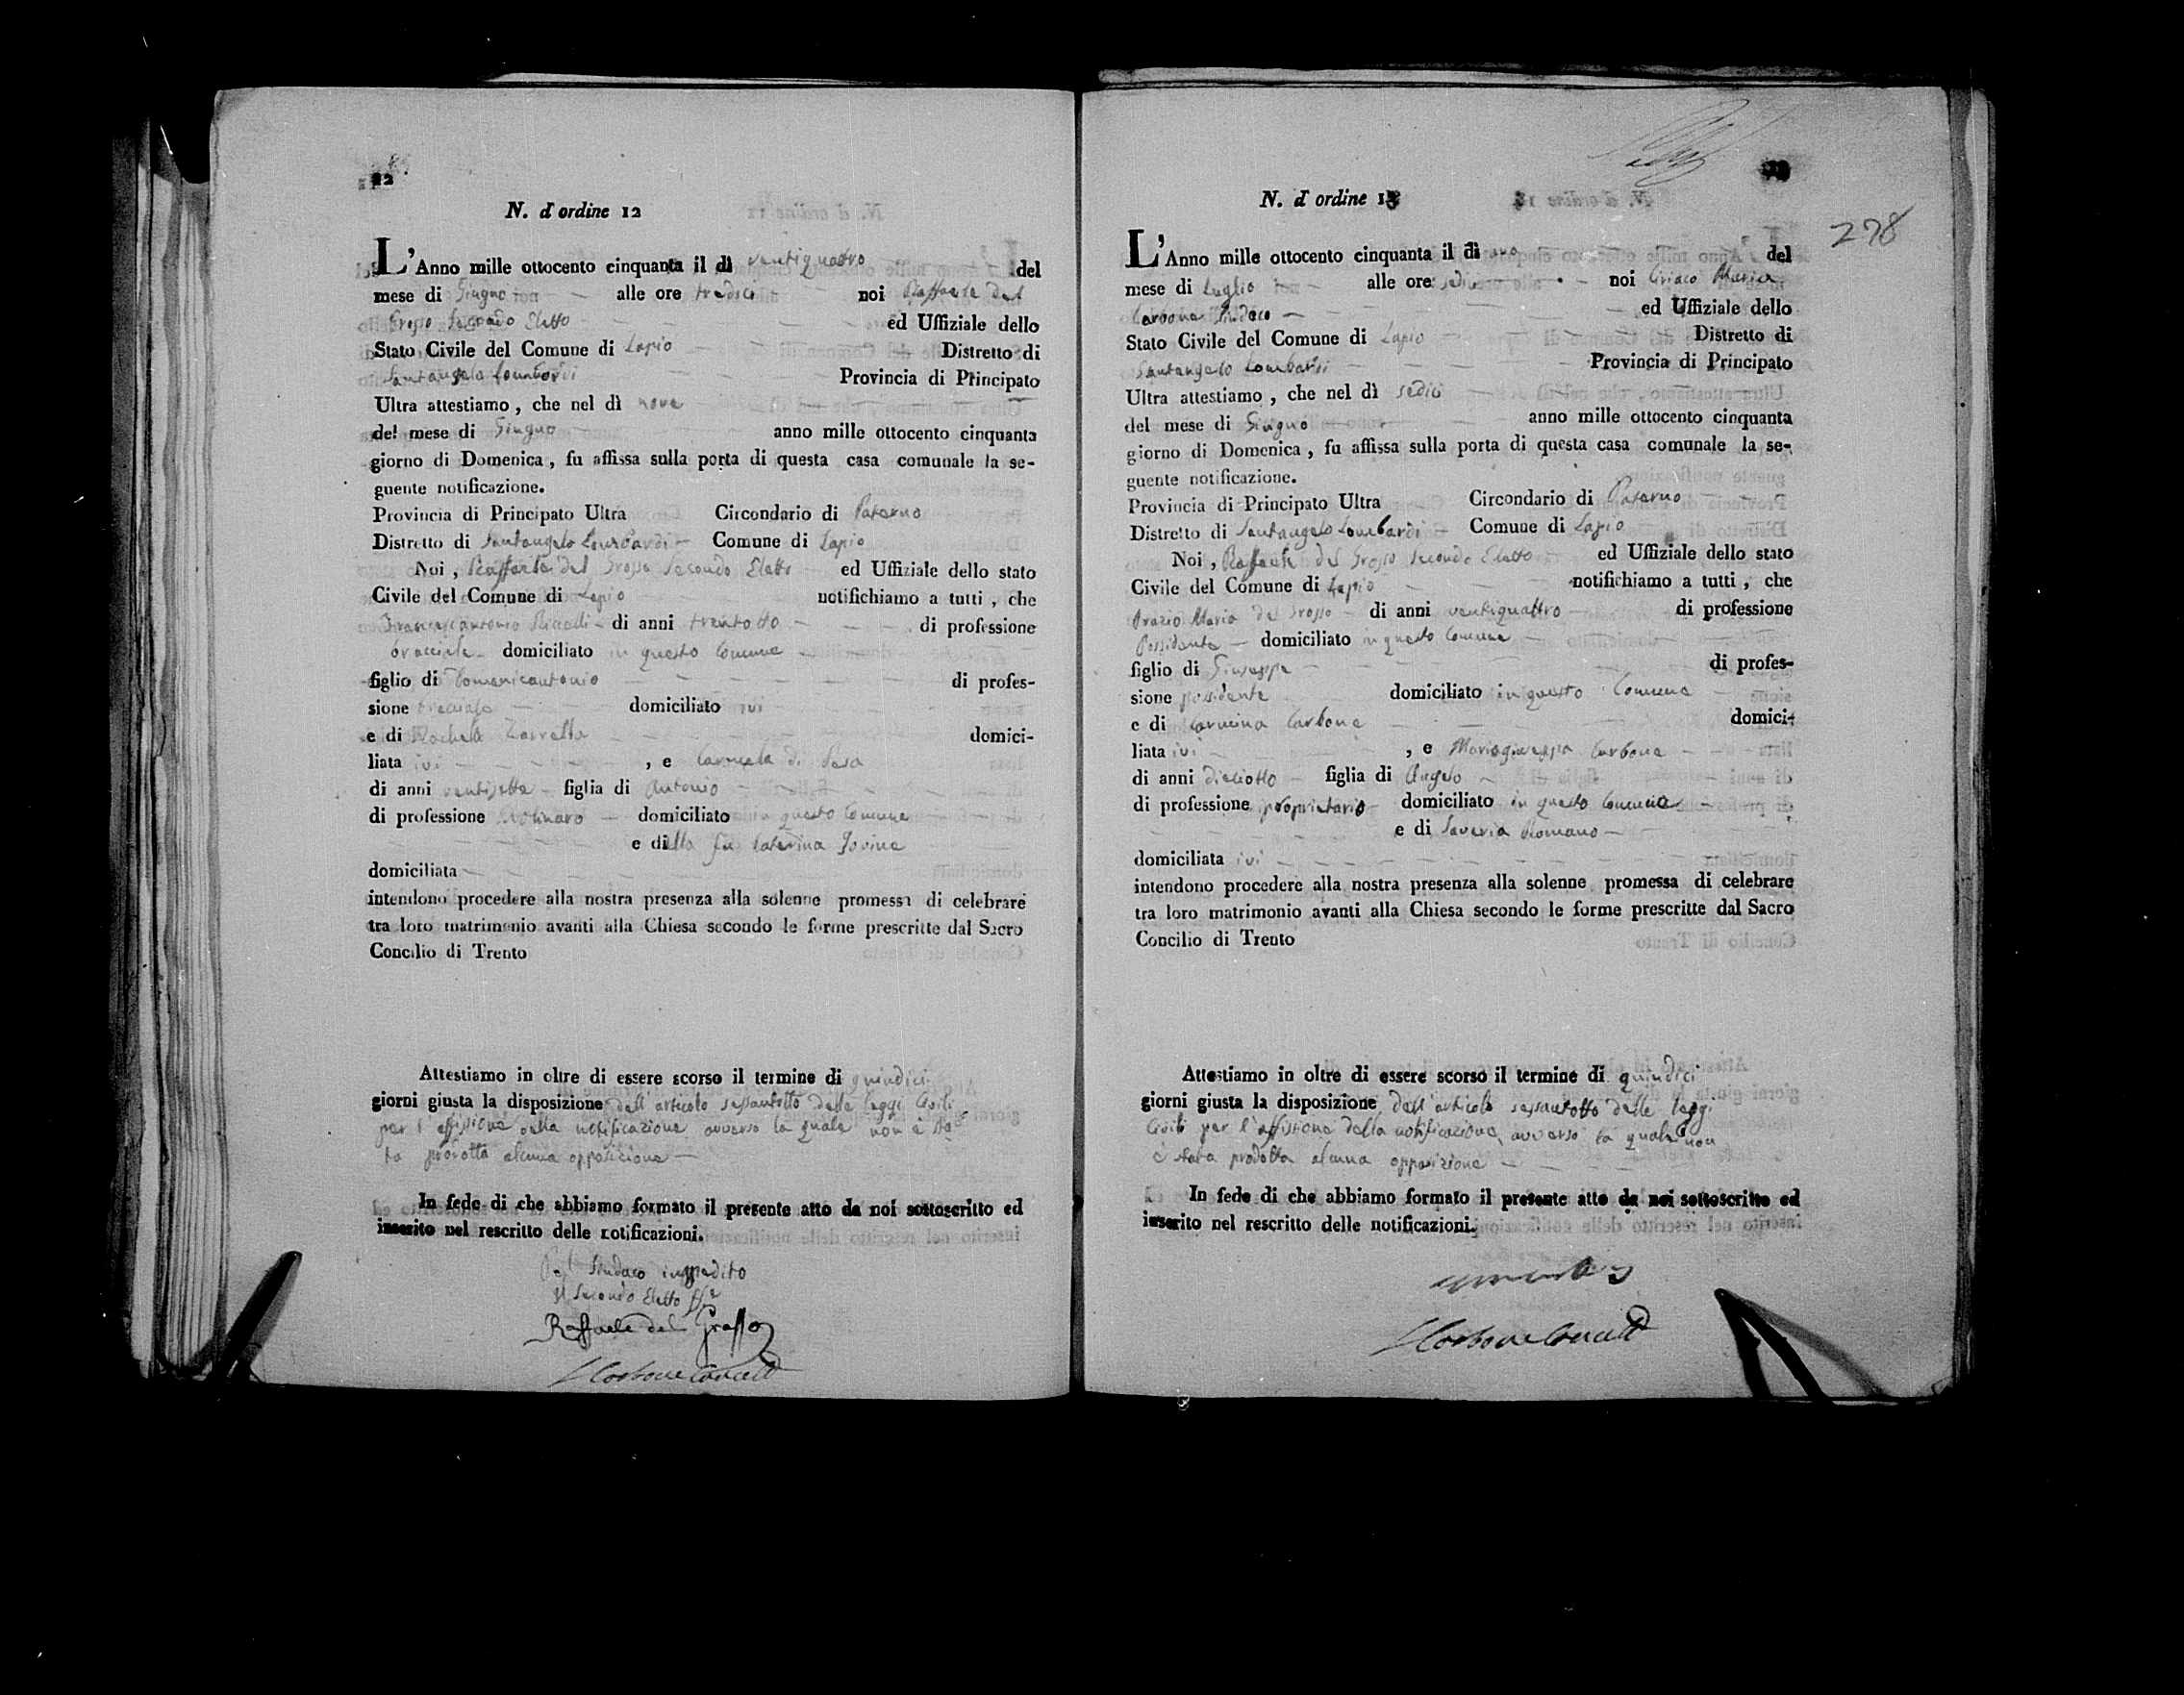 12
N. d'ordine 12
L'Anno mille ottocento cinquanta il dì ventiquattro del
mese di Giugno alle ore tredici noi Raffaele del
Grosso Secondo Eletto ed Uffiziale dello
Stato Civile del Comune di Lapio Distretto di
Santangelo Lombardi Provincia di Principato
Ultra attestiamo, che nel dì nove
del mese di Giugno anno mille ottocento cinquanta
giorno di Domenica, fu affissa sulla porta di questa casa comunale la se-
guente notificazione.
Provincia di Principato Ultra Circondario di Paterno
Distretto di Santangelo Lombardi Comune di Lapio
Noi, Raffaele del Grosso Secondo Eletto ed Uffiziale dello stato
Civile del Comune di Lapio notifichiamo a tutti, che
Francescantonio di anni trentotto di professione
bracciale domiciliato in questo Comune
figlio di Domenicantonio di profes-
sione bracciale domiciliato ivi
e di domici-
liata ivi , e Carmela di
di anni ventisette figlia di Antonio
di professione Molinaro domiciliato in questo Comune
e della fu Caterina Iovine
domiciliata
intendono procedere alla nostra presenza alla solenne promessa di celebrare
tra loro matrimonio avanti alla Chiesa secondo le forme prescritte dal Sacro
Concilio di Trento
Attestiamo in oltre di essere scorso il termine di quindici
giorni giusta la disposizione dell'articolo sessantotto delle leggi Civili
per l'affissione della notificazione avverso la quale non è sta
ta prodotta alcuna opposizione
In fede di che abbiamo formato il presente atto da noi sottoscritto ed
inserito nel rescritto delle notificazioni.
Pel Sindaco impedito
Il Secondo Eletto
Raffaele del Grosso
N. d'ordine 13
278
L'Anno mille ottocento cinquanta il dì uno del
mese di Luglio alle ore sedici noi Ciriaco Maria
Carbone Sindaco ed Uffiziale dello
Stato Civile del Comune di Lapio Distretto di
Santangelo Lombardi Provincia di Principato
Ultra attestiamo, che nel dì sedici
del mese di Giugno anno mille ottocento cinquanta
giorno di Domenica, fu affissa sulla porta di questa casa comunale la se-
guente notificazione.
Provincia di Principato Ultra Circondario di Paterno
Distretto di Santangelo Lombardi Comune di Lapio
Noi, Raffaele del Grosso Secondo Eletto ed Uffiziale dello stato
Civile del Comune di Lapio notifichiamo a tutti, che
Orazio Maria del Grosso di anni ventiquattro di professione
Possidente domiciliato in questo Comune
figlio di Giuseppe di profes-
sione possidente domiciliato in questo Comune
e di Carmina Carbone domici-
liata ivi , e Mariagiuseppa Carbone
di anni dieciotto figlia di Angelo
di professione proprietario domiciliato in questo Comune
e di Saveria Romano
domiciliata ivi
intendono procedere alla nostra presenza alla solenne promessa di celebrare
tra loro matrimonio avanti alla Chiesa secondo le forme prescritte dal Sacro
Concilio di Trento
Attestiamo in oltre di essere scorso il termine di quindici
giorni giusta la disposizione dell'articolo sessantotto delle leggi
Civili per l'affissione della notificazione, avverso la quale non
è stata prodotta alcuna opposizione
In fede di che abbiamo formato il presente atto da noi sottoscritto ed
inserito nel rescritto delle notificazioni.